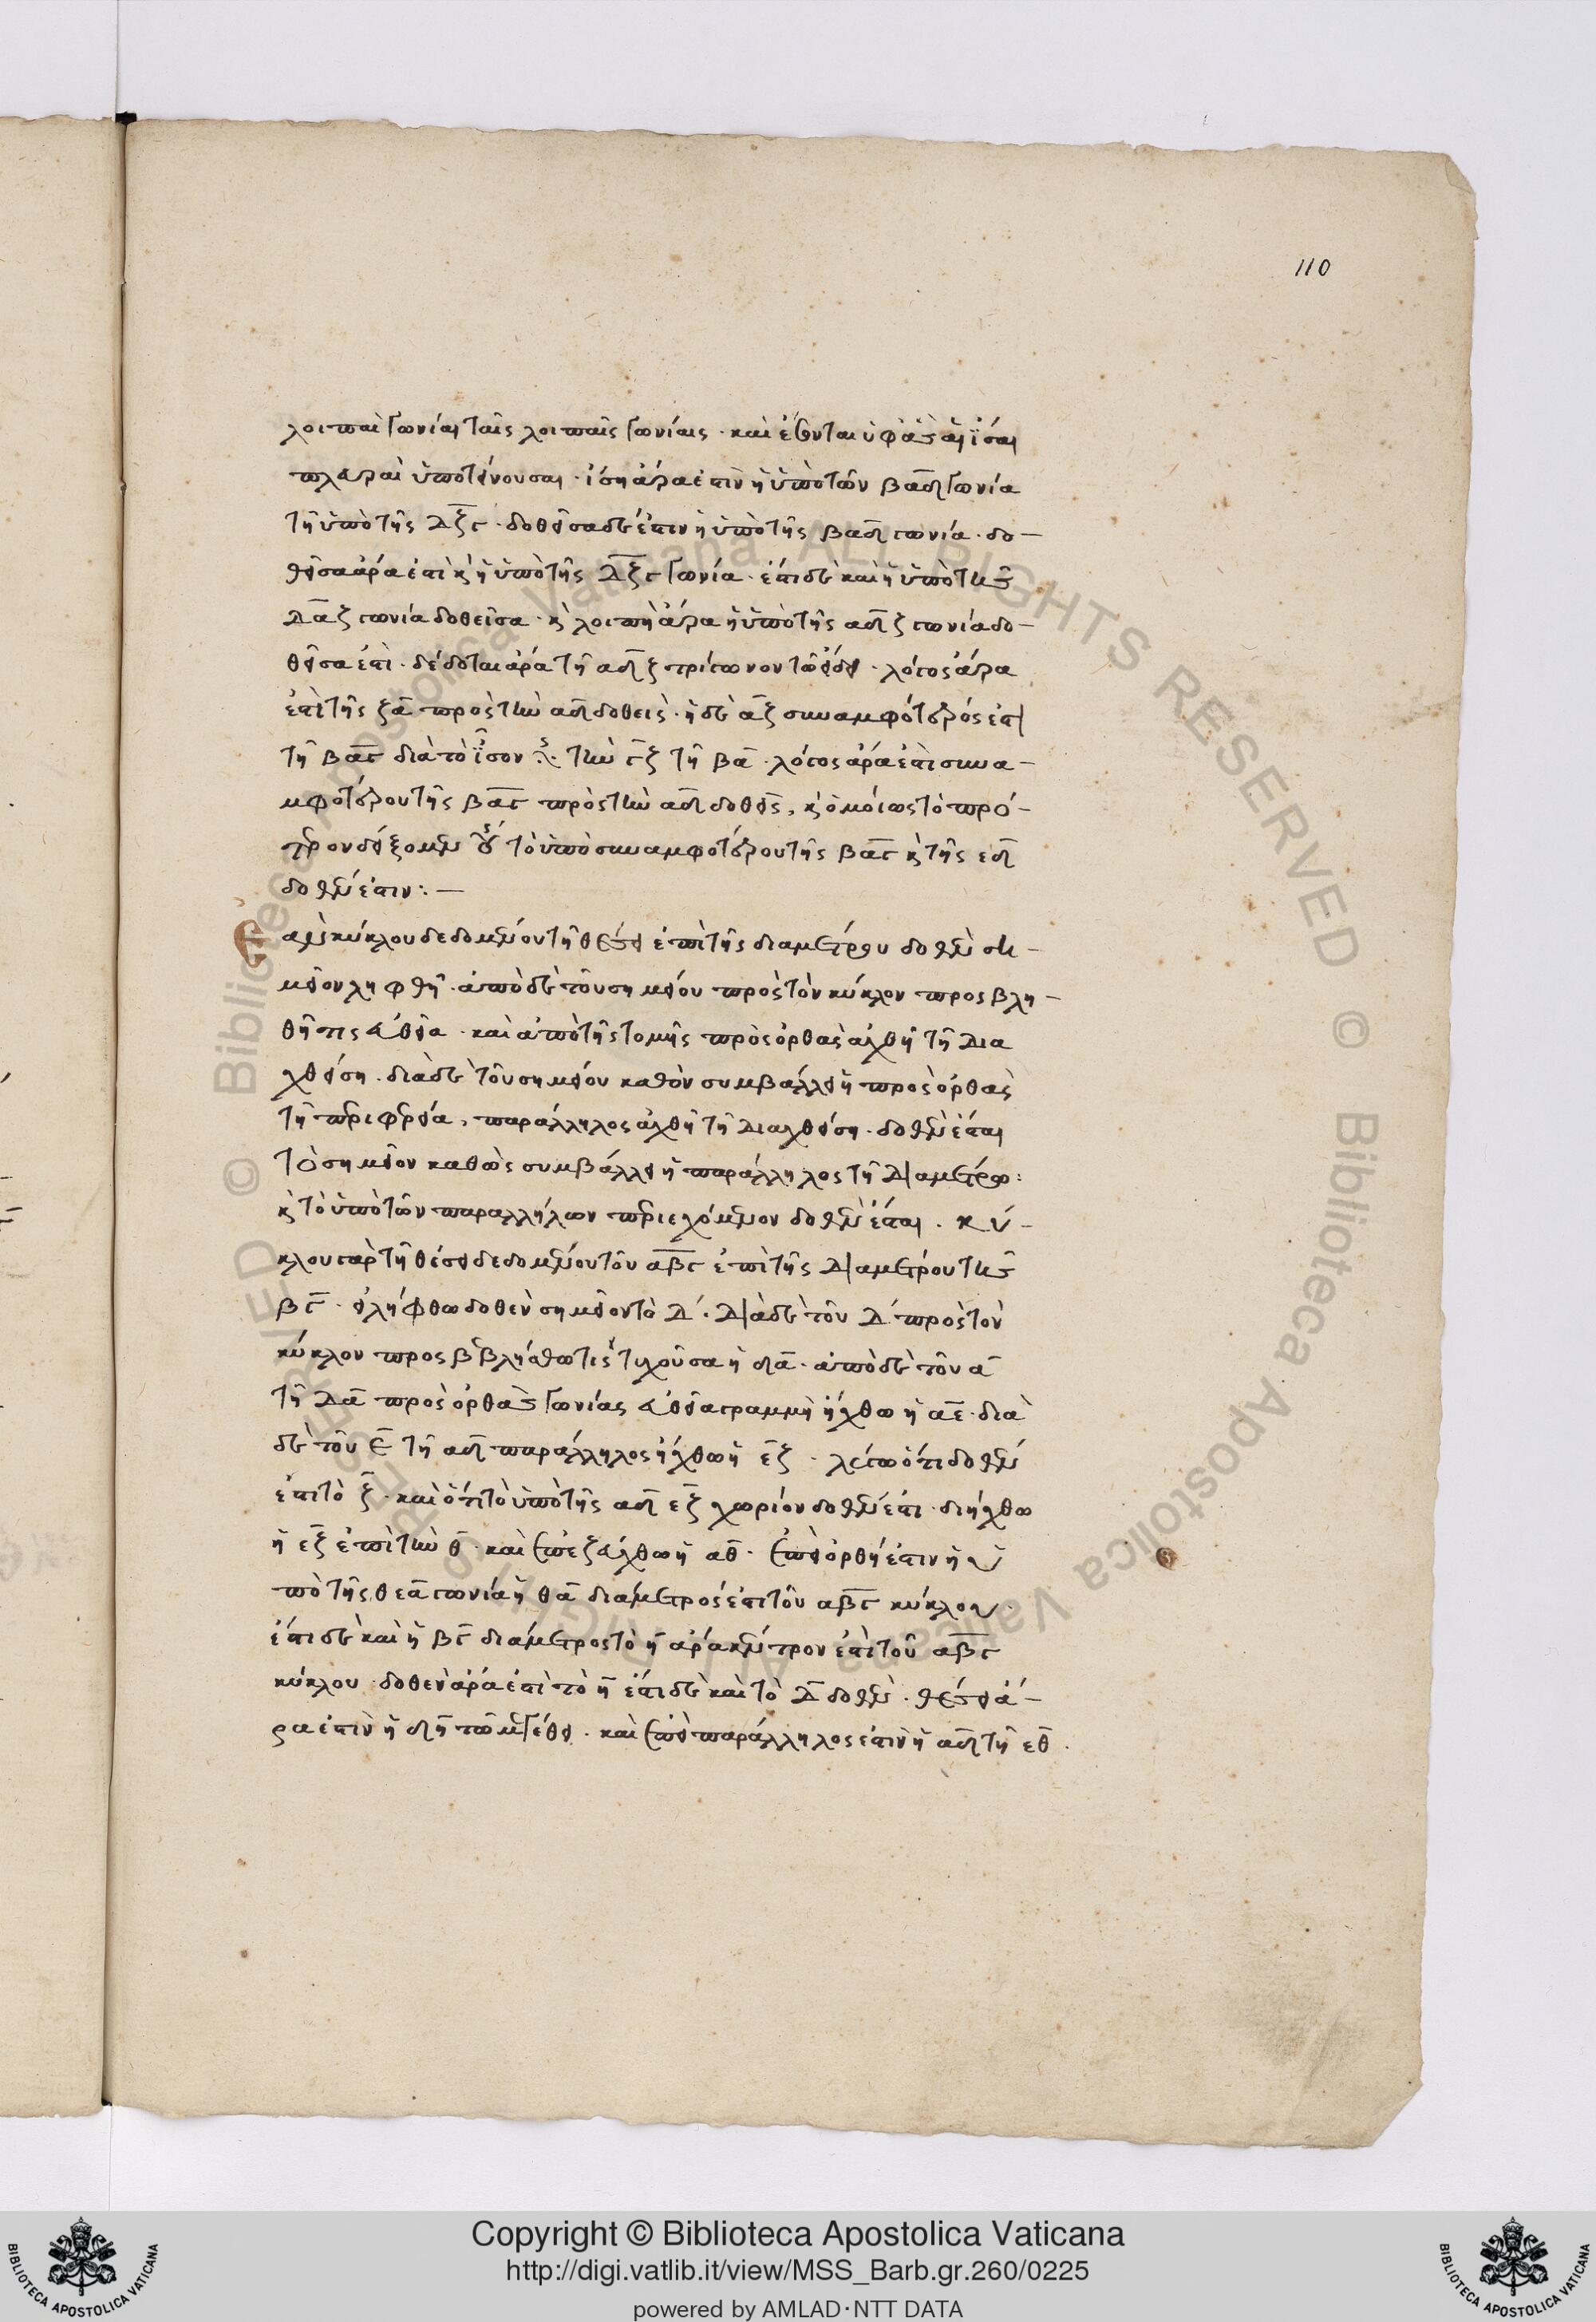 110
λοιπαὶ γωνίαι ταῖς λοιπαῖς γωνίαις · καὶ ἔσονται ὑφ' ἃς αἱ ἴσαι
πλευραὶ ὑποτείνουσαι · ἴση ἄρα ἐστὶν ἡ ὑπὸ τῶν βαδ γωνία
τῇ ὑπὸ τῆς δζγ · δοθεῖσα δέ ἐστιν ἡ ὑπὸ τῆς βαδ γωνία · δο-
θεῖσα ἄρα ἐστὶ κ ἡ ὑπὸ τῆς δζγ γωνία · ἔστι δὲ καὶ ἡ ὑπὸ τῆς
δαζ γωνία δοθεῖσα · κ λοιπὴ ἄρα ἡ ὑπὸ τῆς αδζ γωνία δο-
θεῖσα ἐστὶ · δέδοται ἄρα τῇ αδζ τρίγωνον τῷ εἴδει · λόγος ἄρα
ἐστὶ τῆς ζα πρὸς τὴν αδ δοθεὶς · ἡ δὲ αζ συναμφότερός ἐστι
τῇ βαγ διὰ τὸ ἴσον τὴν γζ τῇ βα · λόγος ἄρα ἐστὶ συνα-
μφοτέρου τῆς βαγ πρὸς τὴν αδ δοθείς, κ ὁμοίως τὸ πρό-
τερον δείξομεν τὸ ὑπὸ συναμφοτέρου τῆς βαγ κ τῆς εδ
δοθέν ἐστιν : —
Εαν κύκλου δεδομένου τῇ θέσει ἐπὶ τῆς διαμέτρου δοθὲν ση-
μεῖον ληφθῇ · ἀπὸ δὲ τοῦ σημείου πρὸς τὸν κύκλον προσβλη-
θῇ τις εὐθεῖα · καὶ ἀπὸ τῆς τομῆς πρὸς ὀρθὰς ἀχθῇ τῇ δια
χθείσῃ · διὰ δὲ τοῦ σημείου καθ' ὃν συμβάλλει ἡ πρὸς ὀρθὰς
τῇ περιφερεία, παράλληλος ἀχθῇ τῇ διαχθείσῃ · δοθὲν ἔσται
τὸ σημεῖον καθ' ὡς συμβάλλει ἡ παράλληλος τῇ διαμέτρω :
κ τὸ ὑπὸ τῶν παραλλήλων περιεχόμενον δοθὲν ἔσται . κύ-
κλου γὰρ τῇ θέσει δεδομένου τοῦ αβγ ἐπὶ τῆς διαμέτρου τῆς
βγ · εἰλήφθω δοθὲν σημεῖον τὸ δ · διὰ δὲ τοῦ δ πρὸς τὸν
κύκλον προσβεβλήσθω τις τυχοῦσα ἡ δα · ἀπὸ δὲ τοῦ α
τῇ δα πρὸς ὀρθὰς γωνίας εὐθεῖα γραμμὴ ἤχθω ἡ αε · διὰ
δὲ τοῦ ε τῇ αδ παράλληλος ἤχθω ἡ εζ · λέγω ὅτι δοθέν
ἐστι τὸ ζ · καὶ ὅτι τὸ ὑπὸ τῆς αδ εζ χωρίον δοθέν ἐστι · διήχθω
ἡ εζ ἐπὶ τὴν θ · καὶ ἐπεζεύχθω ἡ αθ · ἐπεὶ ὀρθή ἐστιν ἡ ὑ
πὸ τῆς θεα γωνία ἡ θα διάμετρός ἐστι τοῦ αβγ κύκλου ·
ἔστι δὲ καὶ ἡ βγ διάμετρος τὸ η ἄρα κέντρον ἐστὶ τοῦ αβγ
κύκλου · δοθὲν ἄρα ἐστὶ τὸ η ἔστι δὲ καὶ τὸ δ δοθὲν · θέσει ἄ-
ρα ἐστὶν ἡ δη τῶ μεγέθει · καὶ ἐπεὶ παράλληλος ἐστὶν ἡ αδ τῇ εθ ·
Copyright © Biblioteca Apostolica Vaticana
http://digi.vatlib.it/view/MSS_Barb.gr.260/0225
powered by AMLAD·NTT DATA